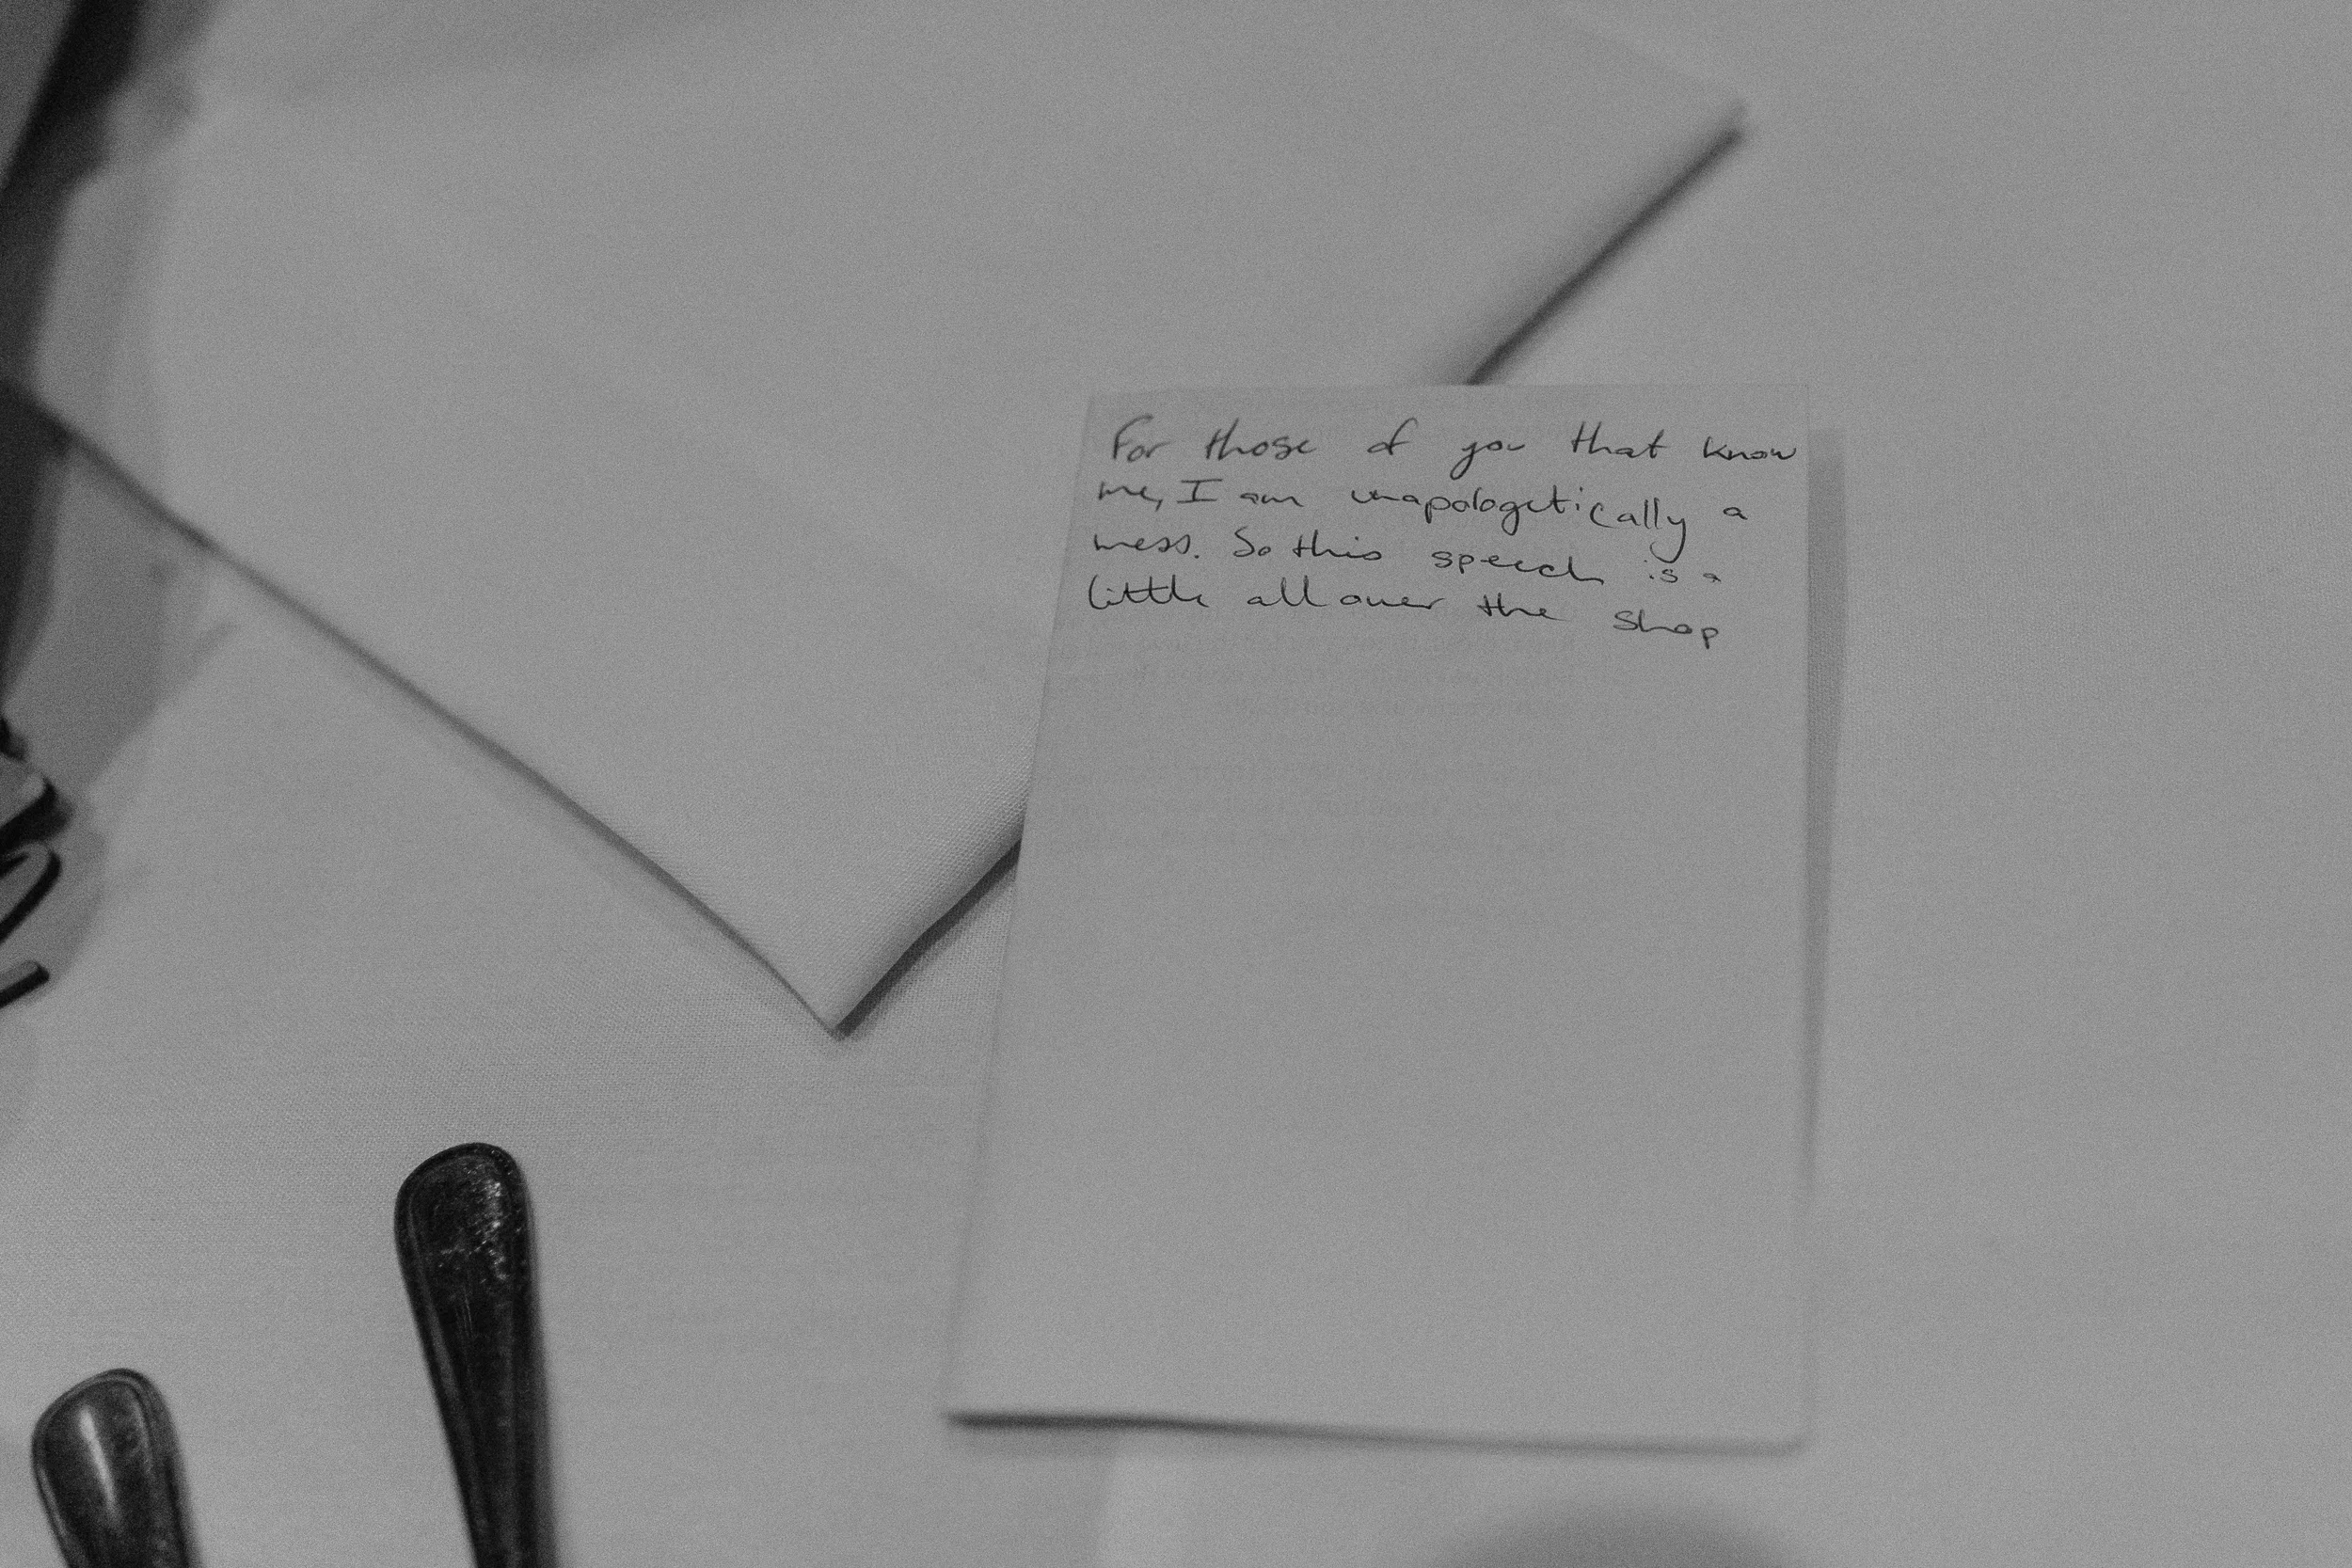 For those of you that know
me, I am unapologetically a
mess. So this speech is a
little all over the shop